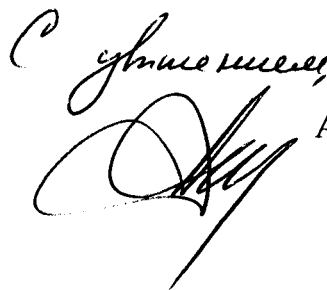 С уважением,
А